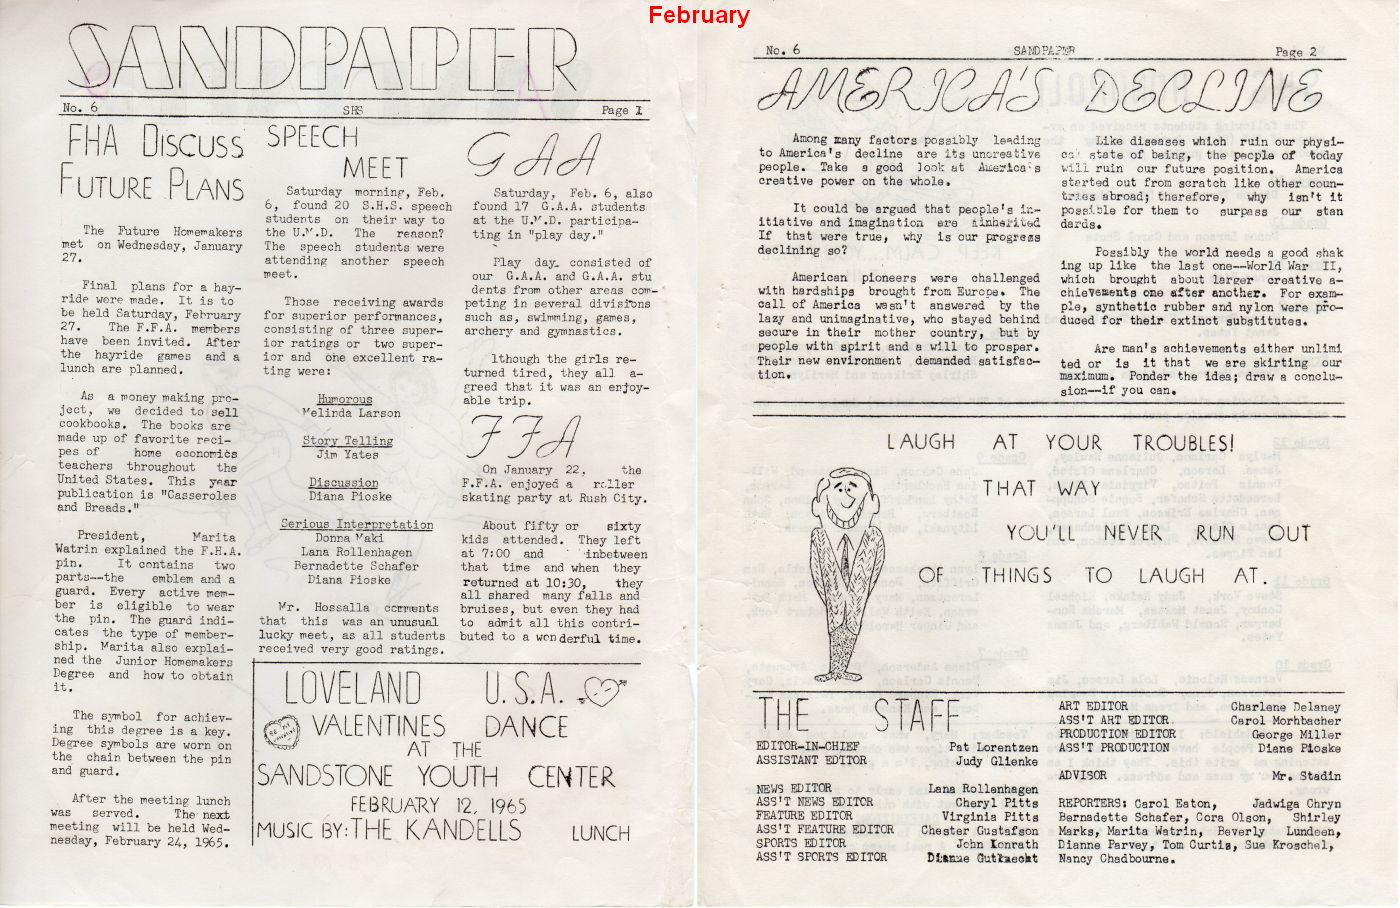 February
SANDPAPER
No. 6 SHS Page 1
FHA DISCUSS
FUTURE PLANS
The Future Homemakers
met on Wednesday, January
27.
Final plans for a hay-
ride were made. It is to
be held Saturday, February
27. The F.F.A. members
have been invited. After
the hayride games and a
lunch are planned.
As a money making pro-
ject, we decided to sell
cookbooks. The books are
made up of favorite reci-
pes of home economics
teachers throughout the
United States. This year
publication is "Casseroles
and Breads."
President, Marita
Watrin explained the F.H.A.
pin. It contains two
parts--the emblem and a
guard. Every active mem-
ber is eligible to wear
the pin. The guard indi-
cates the type of member-
ship. Marita also explai-
ned the Junior Homemakers
Degree and how to obtain
it.
The symbol for achiev-
ing this degree is a key.
Degree symbols are worn on
the chain between the pin
and guard.
After the meeting lunch
was served. The next
meeting will be held Wed-
nesday, February 24, 1965.
SPEECH
MEET
Saturday morning, Feb.
6, found 20 S.H.S. speech
students on their way to
the U.M.D. The reason?
The speech students were
attending another speech
meet.
Those receiving awards
for superior performances,
consisting of three super-
ior ratings or two super-
ior and one excellent ra-
ting were:
Humorous
Melinda Larson
Story Telling
Jim Yates
Discussion
Diana Pioske
Serious Interpretation
Donna Maki
Lana Rollenhagen
Bernadette Schafer
Diana Pioske
Mr. Hossalla comments
that this was an unusual
lucky meet, as all students
received very good ratings.
GAA
Saturday, Feb. 6, also
found 17 G.A.A. students
at the U.M.D. participa-
ting in "play day."
Play day consisted of
our G.A.A. and G.A.A. stu
dents from other areas com-
peting in several divisions
such as, swimming, games,
archery and gymnastics.
lthough the girls re-
turned tired, they all a-
greed that it was an enjoy-
able trip.
FFA
On January 22, the
F.F.A. enjoyed a roller
skating party at Rush City.
About fifty or sixty
kids attended. They left
at 7:00 and inbetween
that time and when they
returned at 10:30, they
all shared many falls and
bruises, but even they had
to admit all this contri-
buted to a wonderful time.
LOVELAND U.S.A.
BE MY VALENTINE
VALENTINES DANCE
AT THE
SANDSTONE YOUTH CENTER
FEBRUARY 12, 1965
MUSIC BY: THE KANDELLS LUNCH
No. 6 SANDPAPER Page 2
AMERICA'S DECLINE
Among many factors possibly leading
to America's decline are its uncreative
people. Take a good look at America's
creative power on the whole.
It could be argued that people's in-
itiative and imagination are ainherited
If that were true, why is our progress
declining so?
American pioneers were challenged
with hardships brought from Europe. The
call of America wasn't answered by the
lazy and unimaginative, who stayed behind
secure in their mother country, but by
people with spirit and a will to prosper.
Their new environment demanded satisfac-
tion.
Like diseases which ruin our physi-
cal state of being, the people of today
will ruin our future position. America
started out from scratch like other coun-
tries abroad; therefore, why isn't it
possible for them to surpass our stan
dards.
Possibly the world needs a good shak
ing up like the last one--World War II,
which brought about larger creative a-
chievements one after another. For exam-
ple, synthetic rubber and nylon were pro-
duced for their extinct substitutes.
Are man's achievements either unlimi
ted or is it that we are skirting our
maximum. Ponder the idea; draw a conclu-
sion--if you can.
LAUGH AT YOUR TROUBLES!
THAT WAY
YOU'LL NEVER RUN OUT
OF THINGS TO LAUGH AT.
THE STAFF
EDITOR-IN-CHIEF Pat Lorentzen
ASSISTANT EDITOR Judy Glienke
NEWS EDITOR Lana Rollenhagen
ASS'T NEWS EDITOR Cheryl Pitts
FEATURE EDITOR Virginia Pitts
ASS'T FEATURE EDITOR Chester Gustafson
SPORTS EDITOR John Konrath
ASS'T SPORTS EDITOR Dianne Gutknecht
ART EDITOR Charlene Delaney
ASS'T ART EDITOR Carol Morhbacher
PRODUCTION EDITOR George Miller
ASS'T PRODUCTION Diane Pioske
ADVISOR Mr. Stadin
REPORTERS: Carol Eaton, Jadwiga Chryn
Bernadette Schafer, Cora Olson, Shirley
Marks, Marita Watrin, Beverly Lundeen,
Dianne Parvey, Tom Curtis, Sue Kroschel,
Nancy Chadbourne.